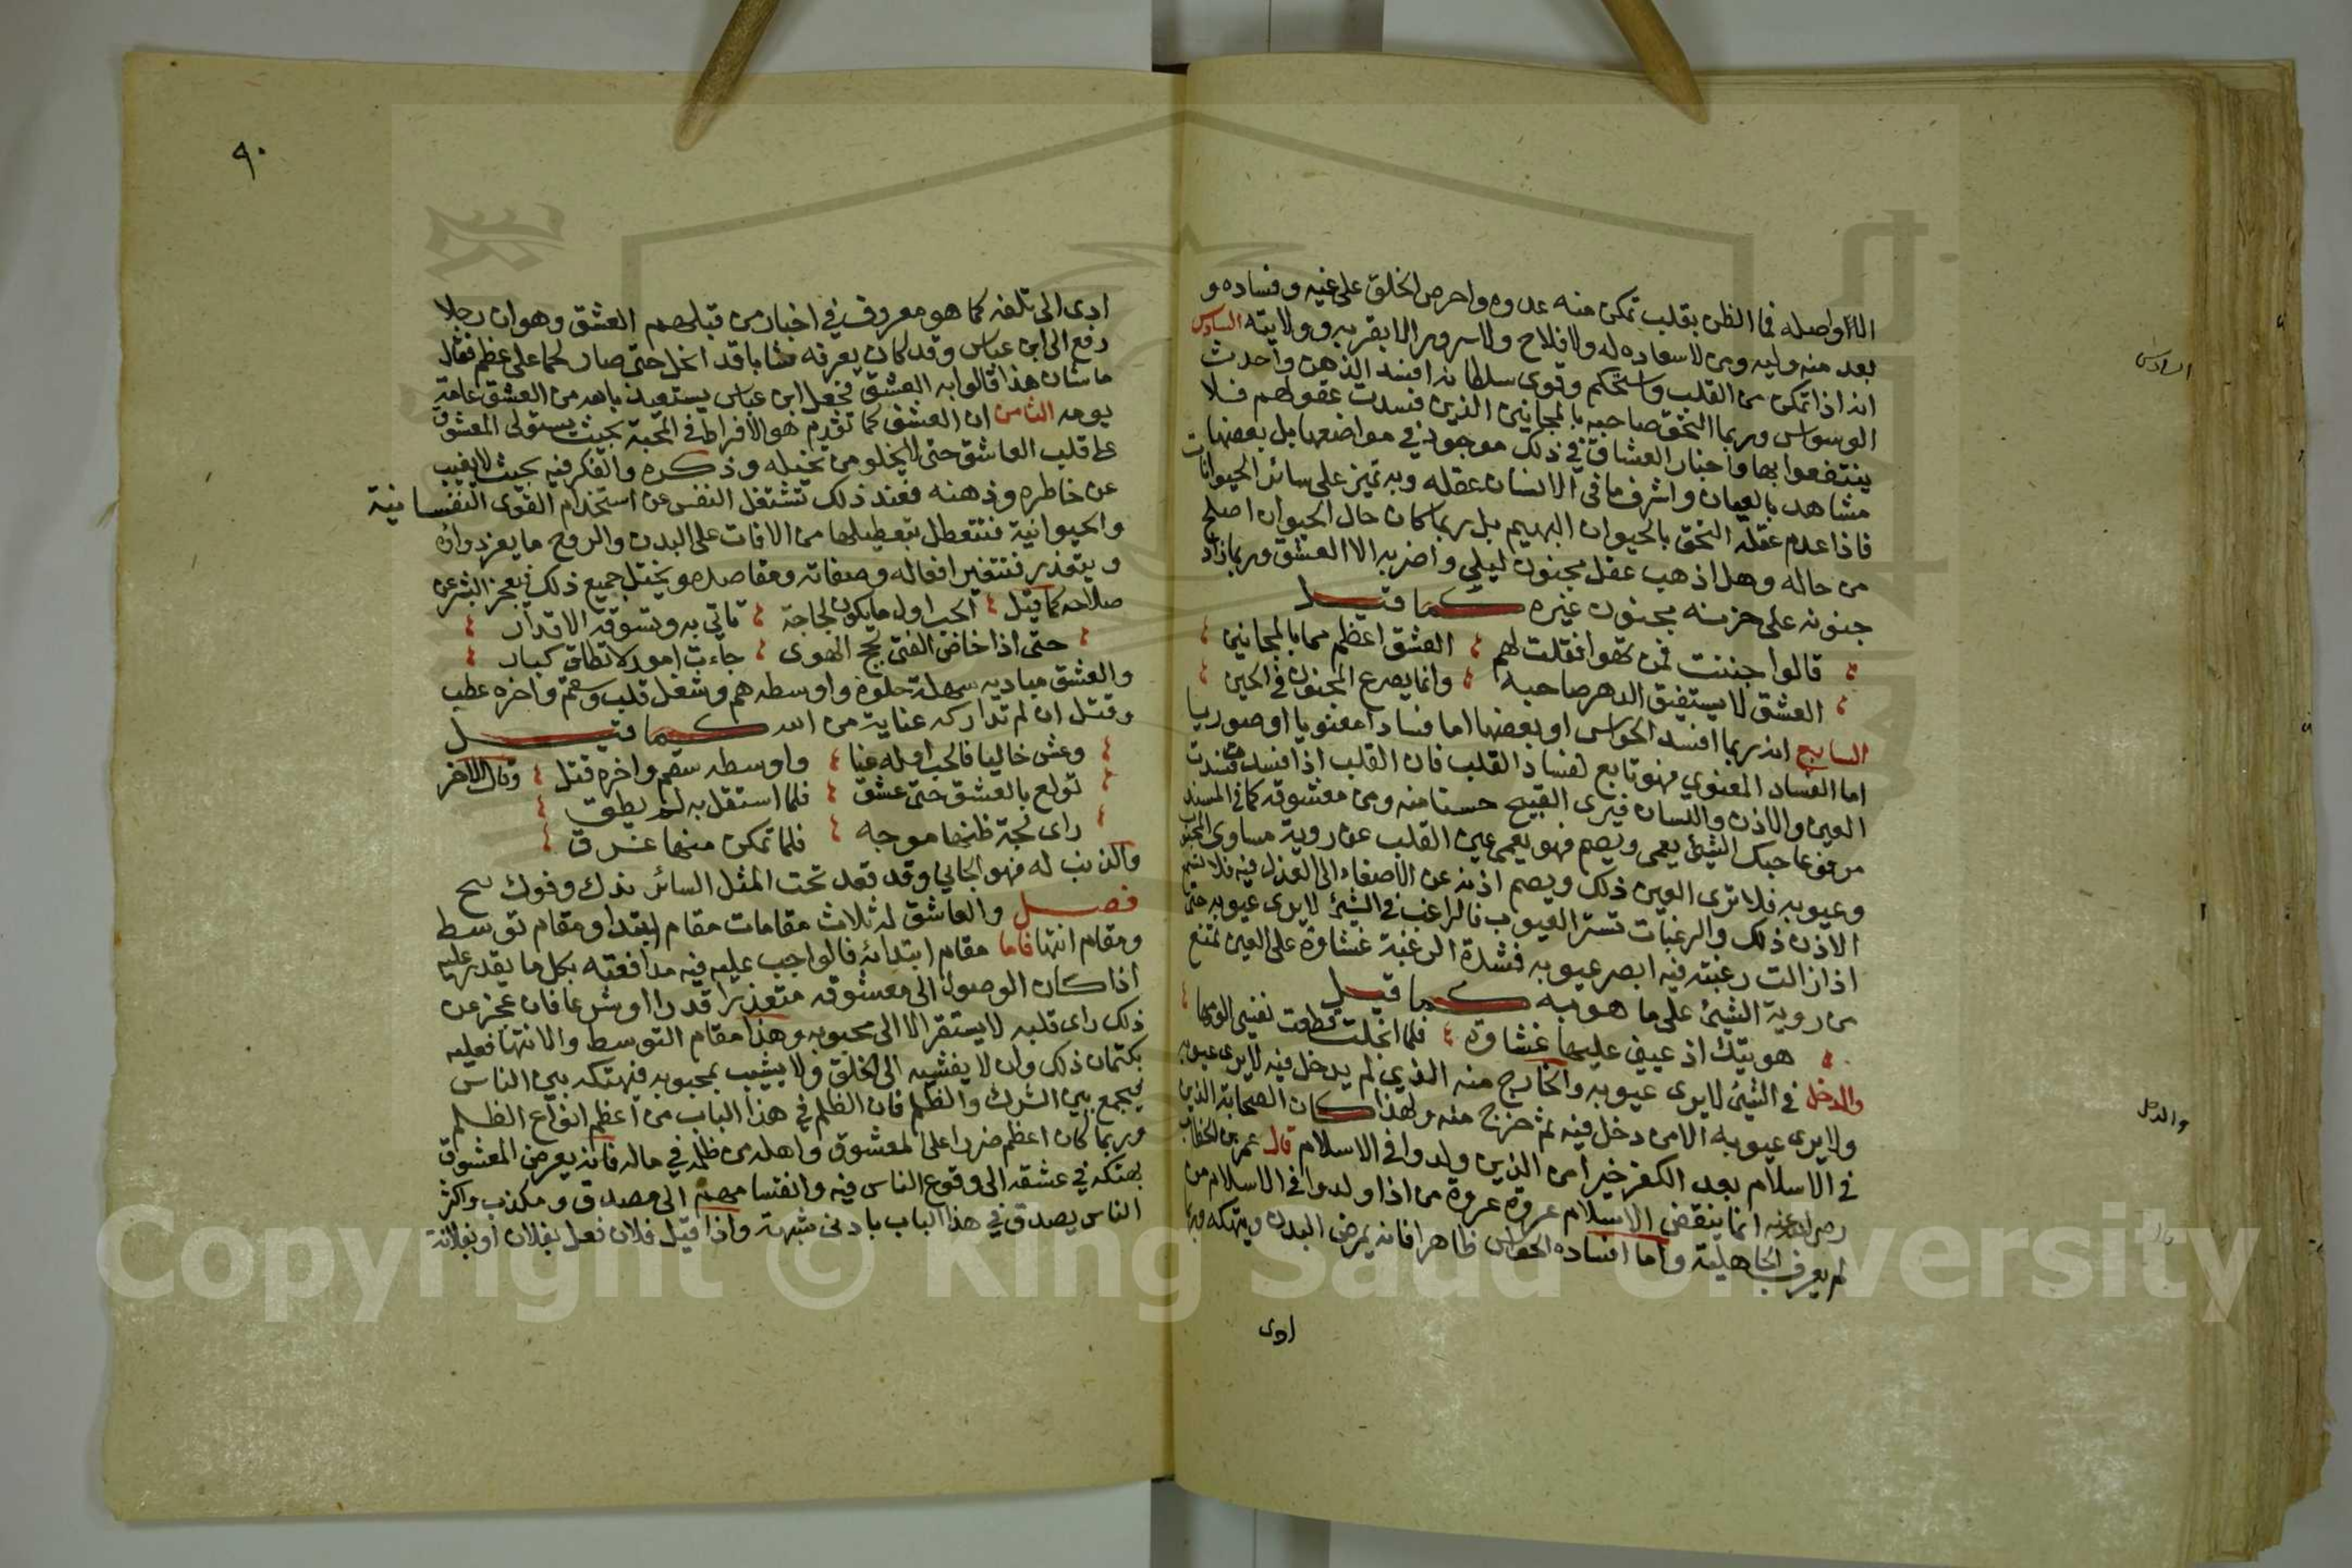 الا اوصله فما الظن بقلب تمكن منه عدوه واحرص الخلق على غيه وفساده و
بعد منه وليه ومن لا سعاده له ولا فلاح ولا سرور الا بقربه وولايته السادس
انه اذا تمكن من القلب واستحكم وقوى سلطانه افسد الذهن واحدث
الوسواس وربما التحق صاحبه بالمجانين الذين فسدت عقولهم فلا
ينتفعوا بها واخبار العشاق في ذلك موجود في مواضعها بل بعضها
مشاهد بالعيان واشرف ما في الانسان عقله وبه تميز على سائر الحيوانات
فاذا عدم عقله التحق بالحيوان البهيم بل ربما كان حال الحيوان اصلح
من حاله وهل اذهب عقل مجنون ليلى واضربه الا العشق وربما زاد
جنونه على جنون غيره كما قيل
قالوا جننت بمن تهوا فقلت لهم العشق اعظم مما بالمجانين
العشق لا يستفيق الدهر صاحبه وانما يصرع المجنون في الحين
السابع انه ربما افسد الحواس او بعضها اما فسادا معنويا او صوريا
اما الفساد المعنوي فهو تابع لفساد القلب فان القلب اذا فسد فسدت
العين والاذن واللسان فيرى القبيح حسنا منه ومن معشوقه كما في المسند
مرفوعا حبك الشيء يعمى ويصم فهو يعمى عين القلب عن روية مساوى المحبوب
وعيوبه فلا ترى العين ذلك ويصم اذنه عن الاصغاء الى العذل فيه فلا تسمع
الاذن ذلك والرغبات تستر العيوب فالراغب في الشيء لا يرى عيوبه حتى
اذا زالت رغبته فيه ابصر عيوبه فشدة الرغبة غشاوة على العين تمنع
من روية الشيء على ما هو به كما قيل
هويتك اذ عيني عليها غشاوة فلما انجلت قطعت نفسي الومها
والدخل في الشيء لا يرى عيوبه والخارج منه الذي لم يدخل فيه لا يرى عيوبه
ولا يرى عيوبه الا من دخل فيه ثم خرج منه ولهذا كان الصحابة الذين
في الاسلام بعد الكفر خيرا من الذين ولدوا في الاسلام قال عمر بن الخطاب
رضي الله عنه انما ينقض الاسلام عروة عروة من اذا ولدوا في الاسلام من
لم يعرف الجاهلية واما افساده الحواس ظاهرا فانه يمرض البدن وينهكه وربما
ادى
السادس
والدخل
٩٠
ادى الى تلفه كما هو معروف في اخبار من قبلهم العشق وهو ان رجلا
رفع الى ابن عباس وقد كان يعرفه شابا قد انحل حتى صار لحما على عظم فقال
ما شان هذا قالوا به العشق فجعل ابن عباس يستعيذ بالله من العشق عامة
يومه الثامن ان العشق كما تقدم هو الافراط في المحبة بحيث يستولى المعشوق
على قلب العاشق حتى لا يخلو من تخيله وذكره والفكر فيه بحيث لا يغيب
عن خاطره وذهنه فعند ذلك تشتغل النفس عن استخدام القوى النفسانية
والحيوانية فتتعطل بتعطيلها من الافات على البدن والروح ما يعز دواؤه
ويتعذر فتتغير افعاله وصفاته ومقاصده ويختل جميع ذلك فيعجز البشر عن
صلاحه كما قيل الحب اول ما يكون لجاجة تاتي به وتسوقه الاقدار
حتى اذا خاض الفتى لجج الهوى جاءت امور لا تطاق كبار
والعشق مباديه سهلة حلوة واوسطه هم وشغل قلب وسقم واخره عطب
وقتل ان لم تداركه عناية من الله كما قيل
وعش خاليا فالحب اوله عنا واوسطه سقم واخره قتل وقال الاخر
تولع بالعشق حتى عشق فلما استقل به لم يطق
راى لجة ظنها موجه فلما تمكن منها غرق
والذنب له فهو الجاني وقد قعد تحت المثل السائر يداك وفوك نفخ
فصل والعاشق له ثلاث مقامات مقام ابتدا ومقام توسط
ومقام انتها فاما مقام ابتدائه فالواجب عليه فيه مدافعته بكل ما يقدر عليه
اذا كان الوصول الى معشوقه متعذرا قدرا او شرعا فان عجز عن
ذلك راى قلبه لا يستقر الا الى محبوبه وهذا مقام التوسط والانتها فعليه
بكتمان ذلك وان لا يفشيه الى الخلق ولا يشبب بمحبوبه فيهتكه بين الناس
فيجمع بين الشرك والظلم فان الظلم في هذا الباب من اعظم انواع الظلم
وربما كان اعظم ضررا على المعشوق واهله من ظلمه في ماله فانه يعرض المعشوق
بهتكه في عشقه الى وقوع الناس فيه وانقسامهم الى مصدق ومكذب واكثر
الناس يصدق في هذا الباب بادنى شبهة واذا قيل فلان فعل بفلان او بفلانة
Copyright © King Saud University